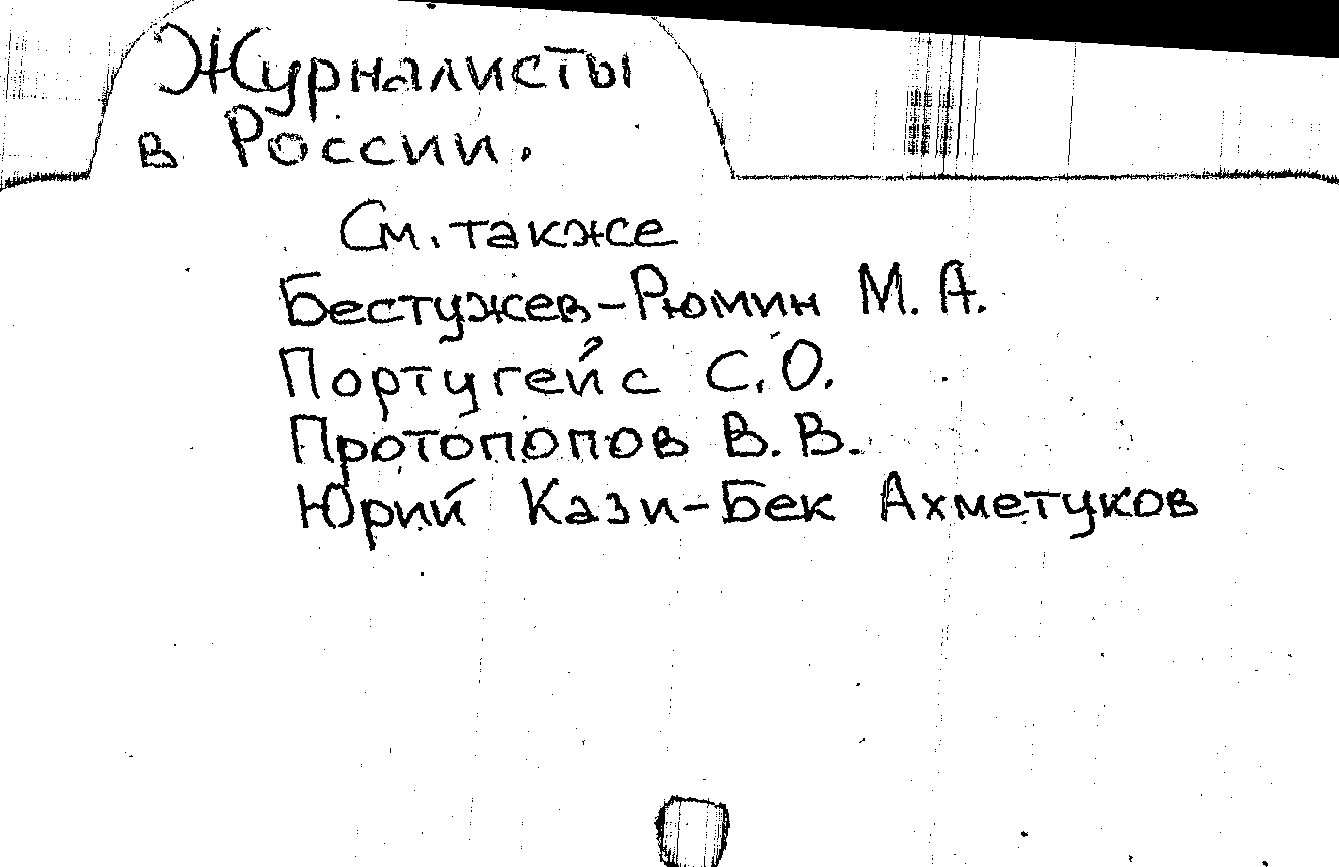 Журналисты
в России.
См. также
Бестужев-Рюмин М. А.
Португейс С. О.
Протопопов В. В.
Юрий Кази-Бек Ахметуков